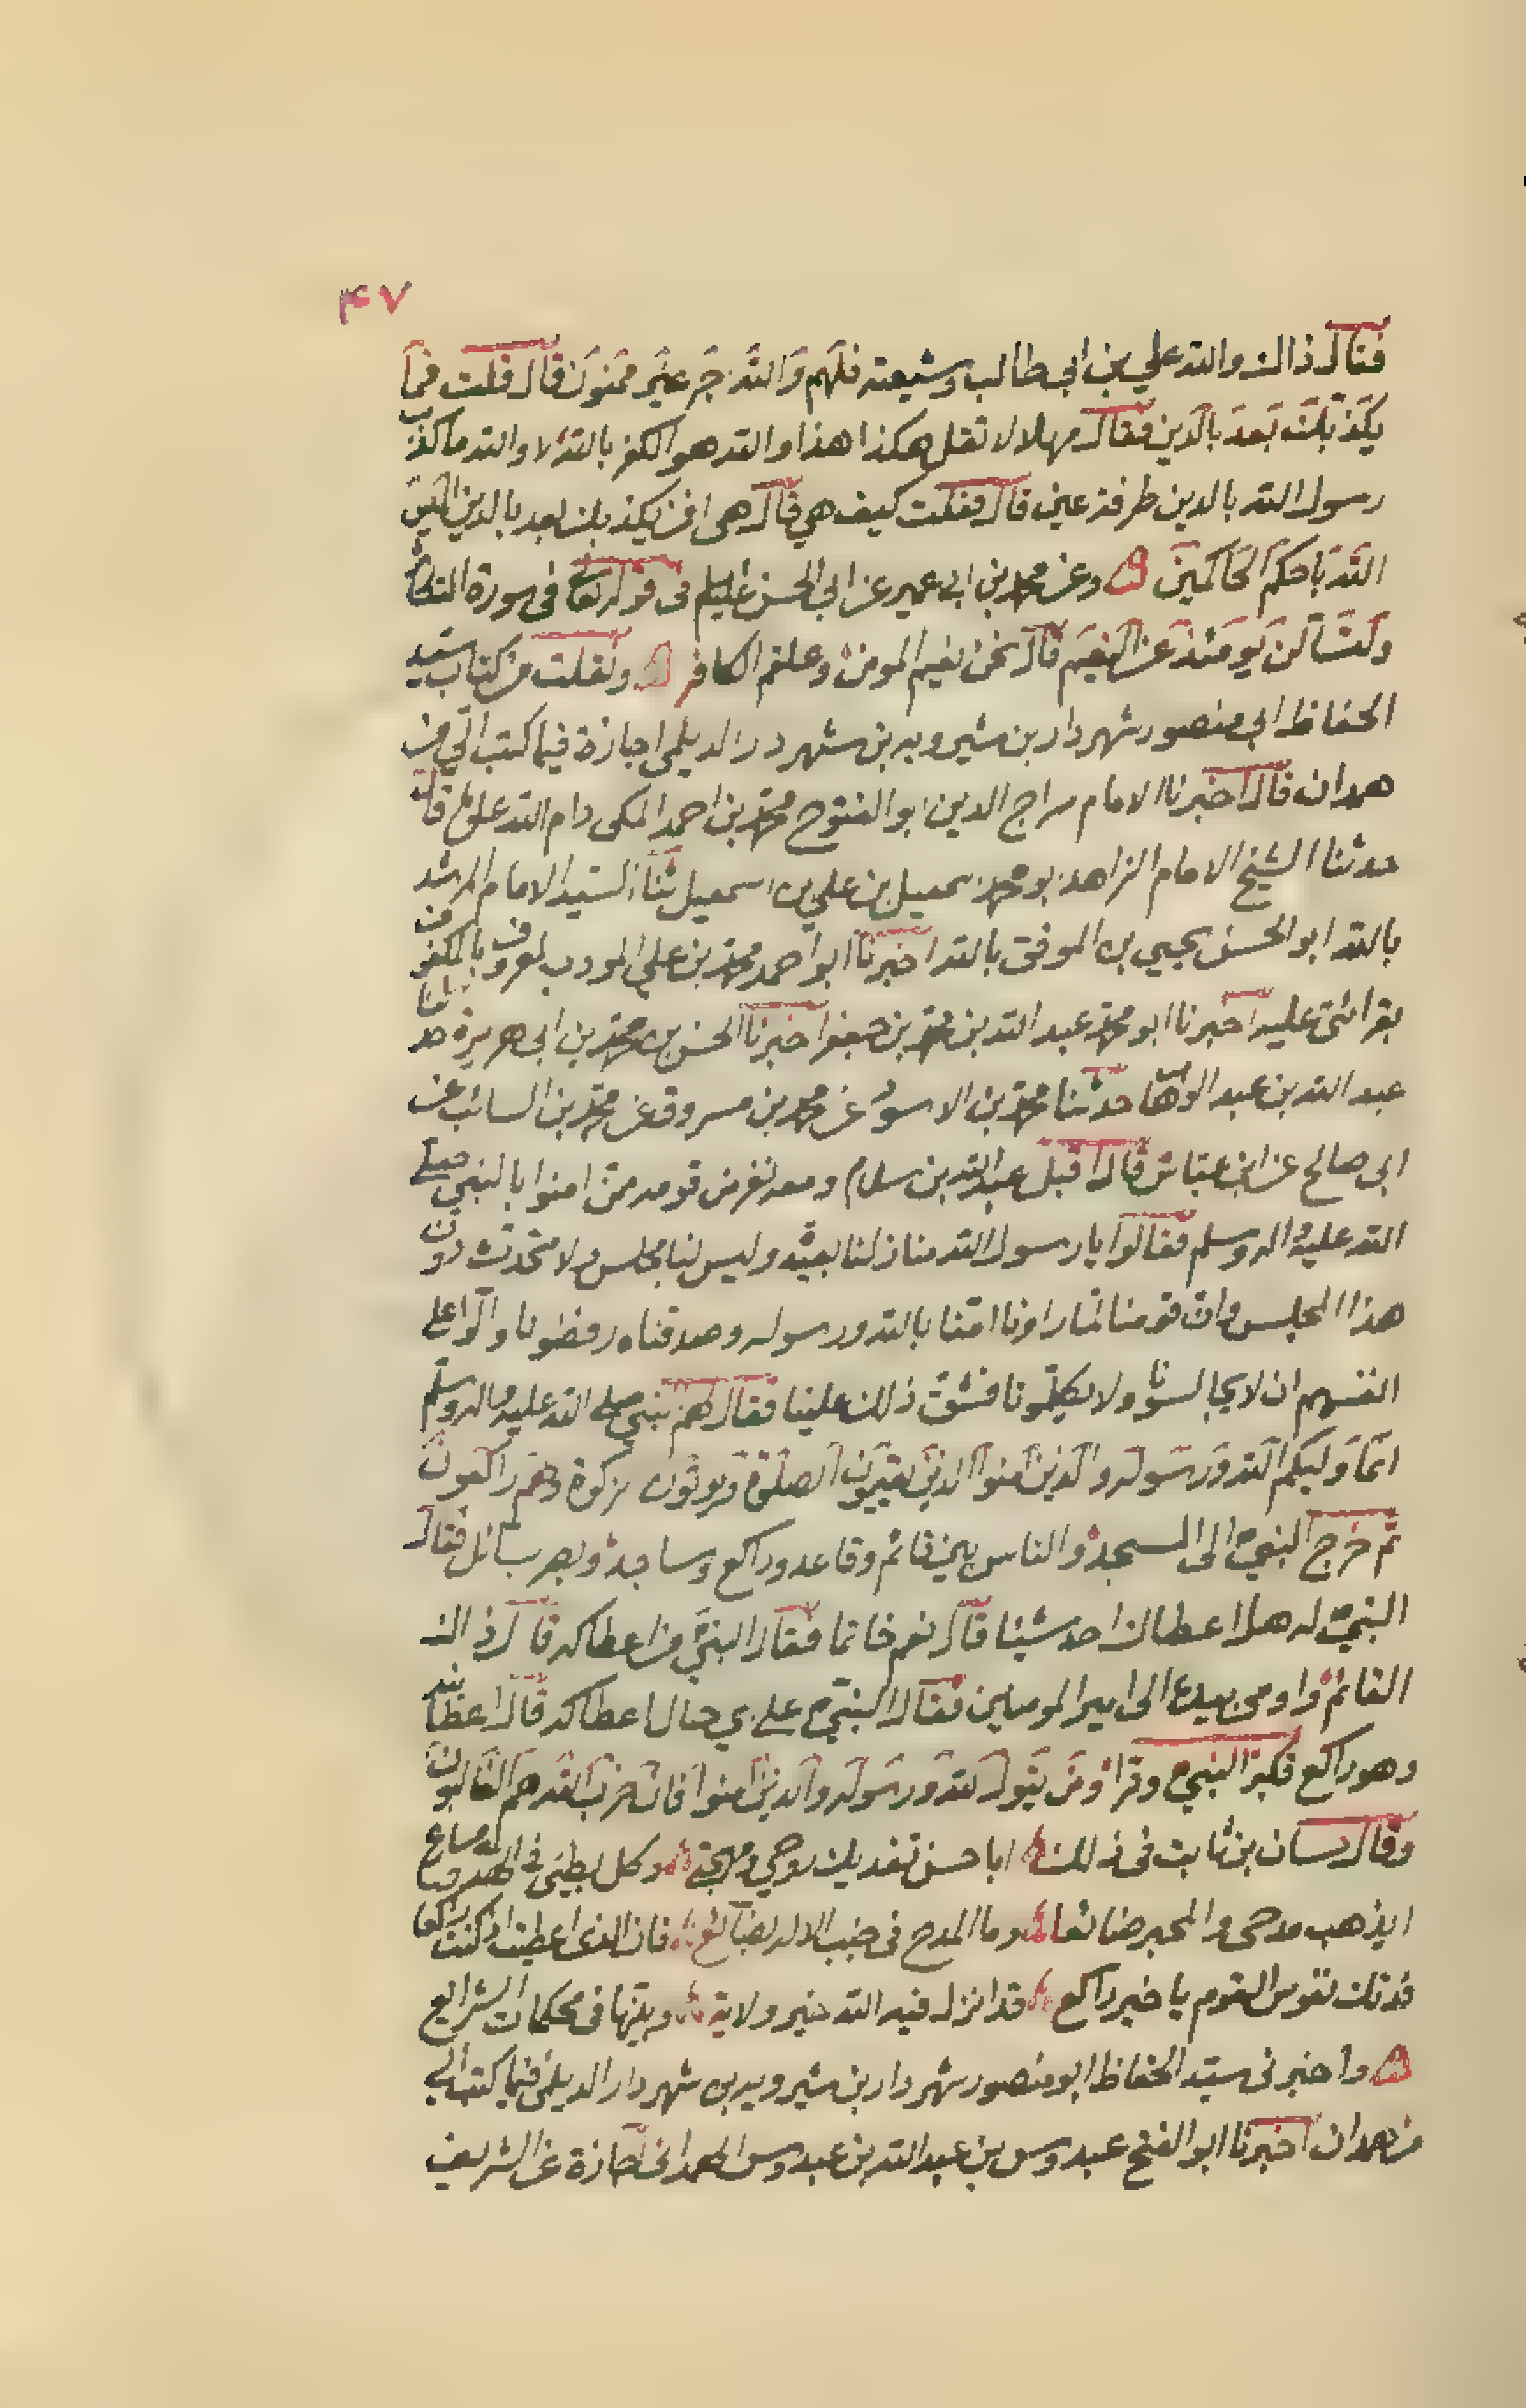 ۴۷
فقال ذاك والله علي بن ابي طالب وشيعته فلهم والله اجر غير ممنون قال قلت فما
يكذبك بعد بالدين فقال مهلا لا تقل هكذا هذا والله هو الكفر بالله لا والله ما كذب
رسول الله بالدين طرفة عين قال فقلت كيف هي قال هى افمن يكذبك بعد بالدين اليس
الله باحكم الحاكمين وعن محمد بن ابى عمير عن ابي الحسن عليلسلم فى قوله تعا فى سورة التكاثر
ولتسألن يومئذ عن النعيم قال نحن نعيم المومن وعلقم الكافر ونقلت من كتاب سيد
الحفاظ ابى منصور شهردار بن شيرويه بن شهردار الديلمى اجازة فيما كتب الى من
همدان قال اخبرنا الامام سراج الدين ابو الفتوح محمد بن احمد المكى دام الله علوه قال
حدثنا الشيخ الامام الزاهد ابو محمد اسمعيل بن علي بن اسمعيل ثنا السيد الامام المرشد
بالله ابو الحسن يحيى بن الموفق بالله اخبرنا ابو احمد محمد بن علي المودب المعروف بالمكفوف
بقرائتى عليه اخبرنا ابو محمد عبد الله بن محمد بن جعفر اخبرنا الحسن بن محمد بن ابى هريرة حدثنا
عبد الله بن عبد الوهاب حدثنا محمد بن الاسود عن محمد بن مسروق عن محمد بن السائب عن
ابى صالح عن ابن عباس قال اقبل عبد الله بن سلام ومعه نفر من قومه ممن امنوا بالنبي صلى
الله عليه واله وسلم فقالوا يا رسول الله منازلنا بعيدة وليس لنا مجلس ولا متحدث دون
هذا المجلس وان قومنا لما راونا امنا بالله ورسوله وصدقناه رفضونا وآلوا على
انفسهم ان لا يجالسونا ولا يكلمونا فشق ذلك علينا فقال لهم النبي صلى الله عليه واله وسلم
انما وليكم الله ورسوله والذين امنوا الذين يقيمون الصلوة ويوتون الزكوة وهم راكعون
ثم خرج النبي الى المسجد والناس بين قائم وقاعد وراكع وساجد وبصر بسائل فقال
النبي له هل اعطاك احد شيئا قال نعم خاتما فقال النبي من اعطاكه قال ذاك
القائم واومى بيده الى امير المومنين فقال النبي على اي حال اعطاكه قال اعطانيه
وهو راكع فكبر النبي وقرا ومن يتول الله ورسوله والذين امنوا فان حزب الله هم الغالبون
وقال حسان بن ثابت فى ذلك ابا حسن تفديك روحي ومهجتي وكل بطيئ في الهدى ومسارع
ايذهب مدحى والمحبر ضائعا وما المدح فى جنب الاله بضائع فانت الذى اعطيت اذ كنت راكعا
فدتك نفوس القوم يا خير راكع فانزل فيه الله خير ولاية وبينها فى محكمات الشرايع
واخبرنى سيد الحفاظ ابو منصور شهردار بن شيرويه بن شهردار الديلمى فيما كتب الى
من همدان اخبرنا ابو الفتح عبدوس بن عبد الله بن عبدوس الهمدانى اجازة عن الشريف